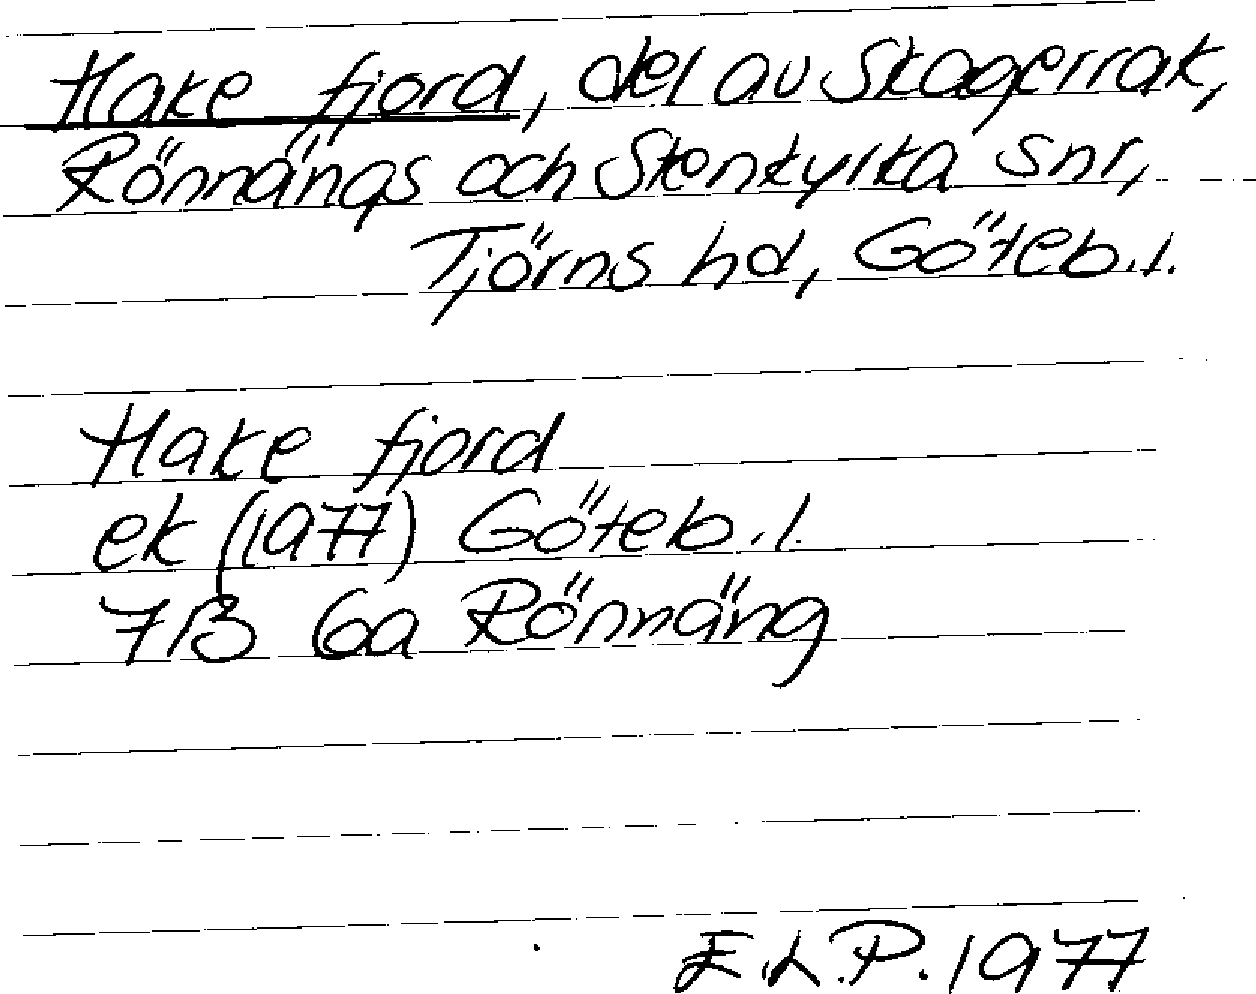 Hake fjord, del av Skagerrak,
Rönnängs och Stenkyrka snr,
Tjörns hd, Göteb.l.
Hake fjord
ek (1977) Göteb.l.
7B 6a Rönnäng
E.L.P. 1977